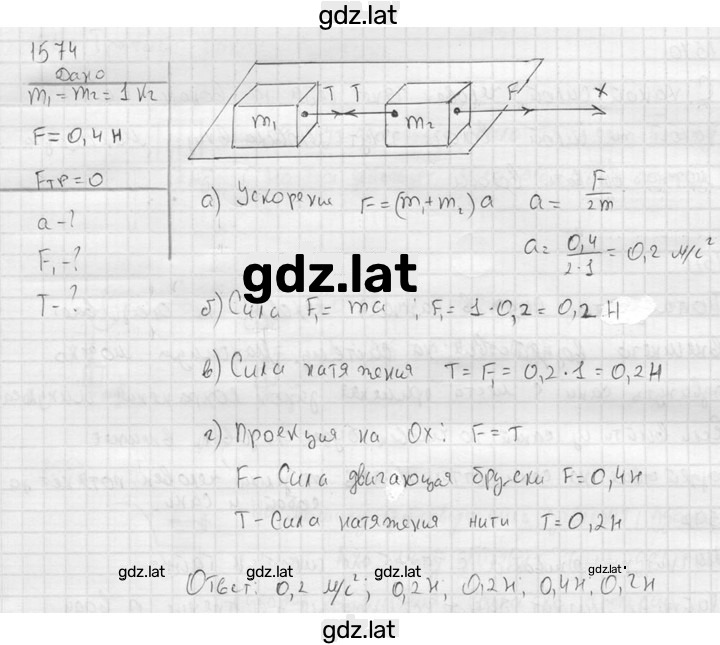 gdz.lat
1574
Дано
m₁ = m₂ = 1 кг
F = 0,4 Н
Fтр = 0
a - ?
F₁ - ?
T - ?
m₁ T T m₂ F X
а) Ускорение F = (m₁+m₂)a a = F/2m
a = 0,4/2·1 = 0,2 м/с²
gdz.lat
б) Сила F₁ = ma ; F₁ = 1·0,2 = 0,2 Н
в) Сила натяжения T = F₁ = 0,2·1 = 0,2 Н
г) Проекция на Ox: F = T
F - Сила двигающая бруски F = 0,4 Н
T - Сила натяжения нити T = 0,2 Н
gdz.lat gdz.lat gdz.lat
Ответ: 0,2 м/с²; 0,2 Н; 0,2 Н; 0,4 Н; 0,2 Н
gdz.lat gdz.lat gdz.lat
gdz.lat